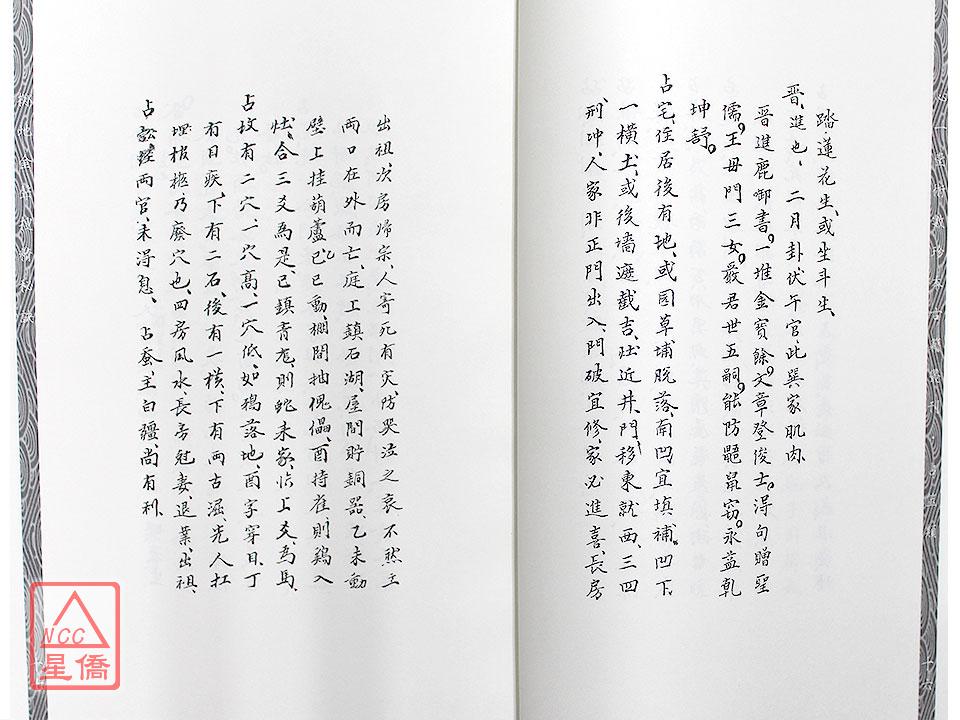 踏蓮花生、或生斗生、
晋、進也、二月卦伏午宫、此巽家肌肉、
晋進鹿啣書。一堆金寶餘。文章登俊士。得句贈聖
儒。王母門三女。發君世五嗣。能防鼯鼠窃。永益乾
坤舒。
占宅、住居後有地、或园草埔脱落、南凹宜填補。凹下
一横土、或後墻遮截吉、灶近井、門移東就西、三四
刑冲、人家非正門出入、門破宜修、家必進喜、長房
出祖、次房帰宗、人寄死有灾、防哭泣之哀不然主
兩口在外而亡、庭上鎮石湖、屋間貯銅器、乙未動
壁上挂葫蘆、巳巳動棚閣抽傀儡、酉持雀則鷄入
灶、合三爻為是、已鎮青龙、則蛇未家、占上爻、為馬、
占坟有二穴、一穴高、一穴低、如鴉落地、酉字穿日、丁
有目疾、下有二石、後有一横、下有两古濕、先人扛
埋棺柩乃癈穴也、四房风水、長旁尅妻、退業、出祖、
占訟、經兩官、未得息、占蚕、主白殭、尚有利、
NCC
星僑